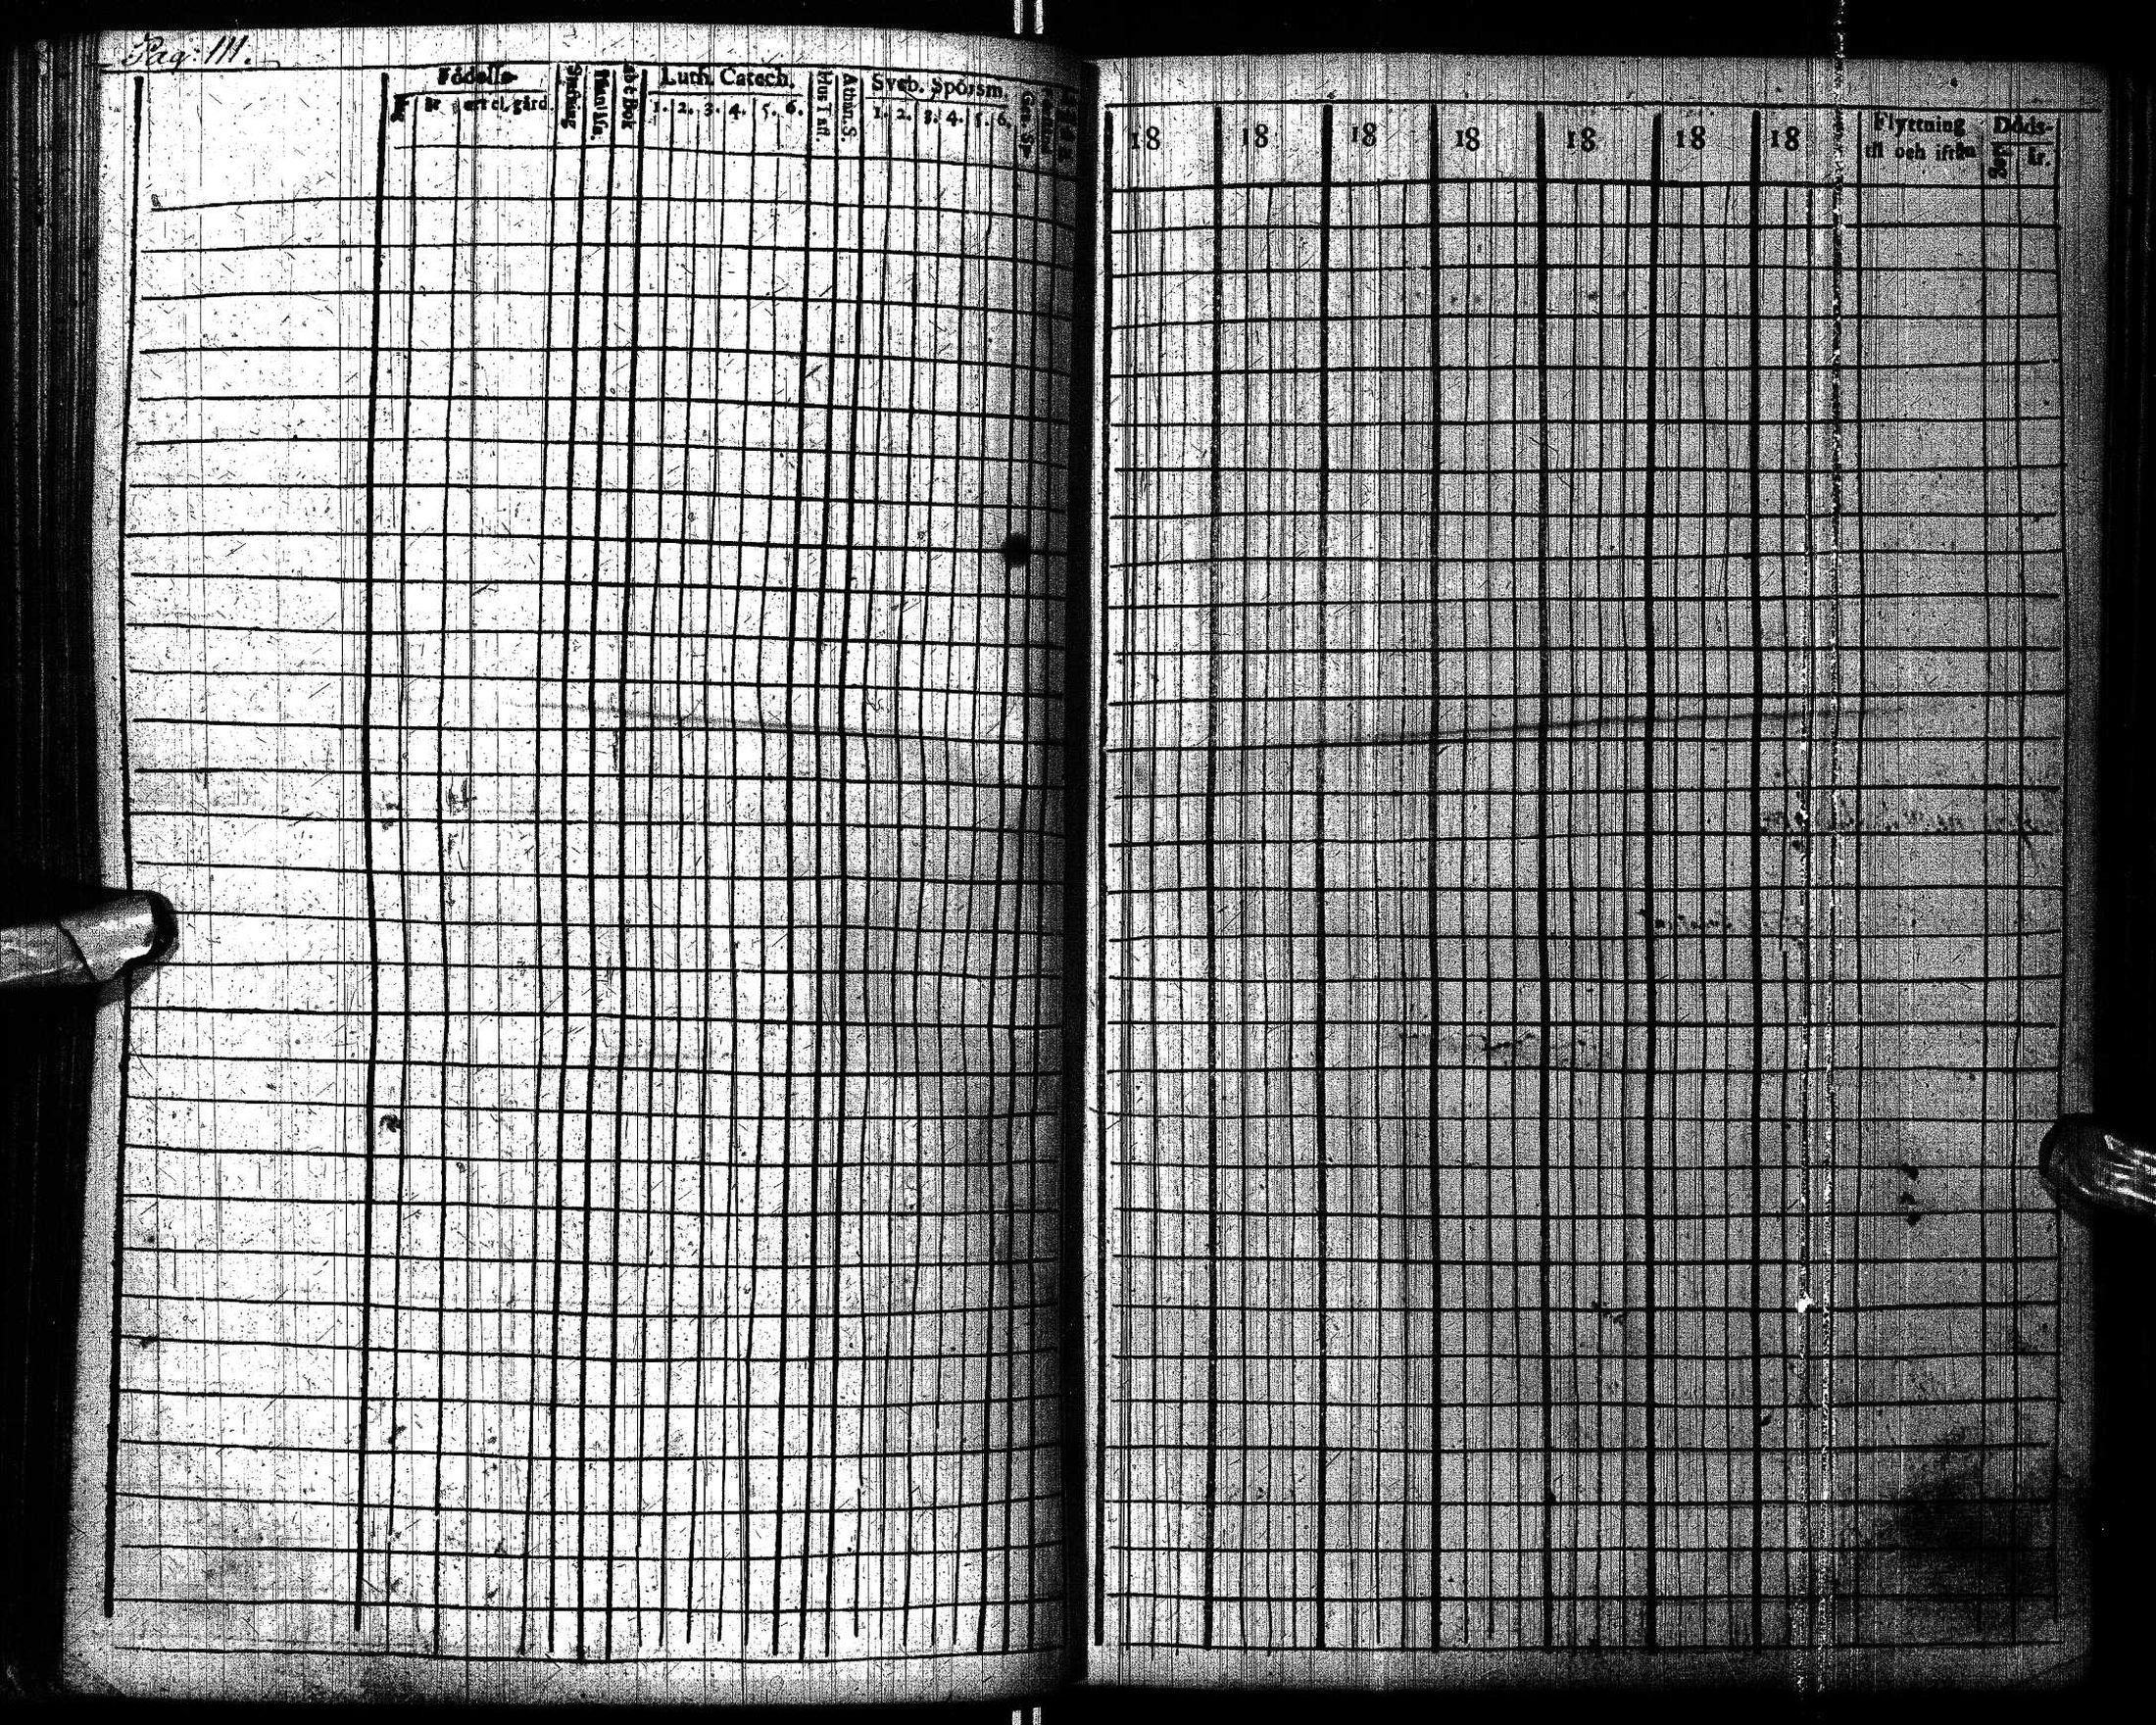 Pag: 111.
Födelse- Luth. Catech. Hus Tafl. Athan. S. Sveb. Spörsm.
år ort el. gård. ab c Bok 1. 2. 3. 4. 5. 6. 1. 2. 3. 4. 5. 6.
18 18 18 18 18 18 18 Flyttning Döds-
til och ifrån dag år.